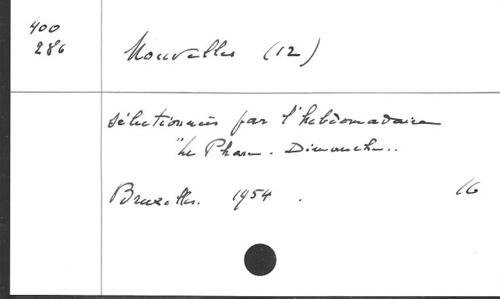 400
286
Nouvelles (12)
sélectionnées par l'hebdomadaire
"Le Phare. Dimanche..
Bruxelles. 1954 . 16